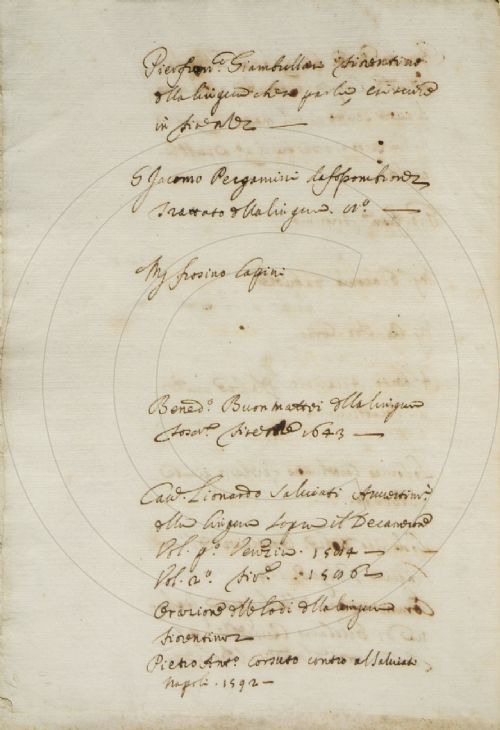 Pierfran.co Giambullari fiorentino
della lingua che si parla, e si scrive
in Firenze —
S Jacomo Pergamini da fossombrone
Trattato della lingua.
Mg frosino Lapini
Bened.o Buonmattei della lingua
tosc.a Firenze 1643 —
Cav. Lionardo Salviati Avvertim.ti
della lingua sopra il Decamerone
Vol. p.o Venezia. 1584 —
Vol. 2.o Fior.a . 1586
Orazione delle lodi della lingua
fiorentina
Pietro Ant.o Corsuto contro al Salviati
Napoli. 1592 —